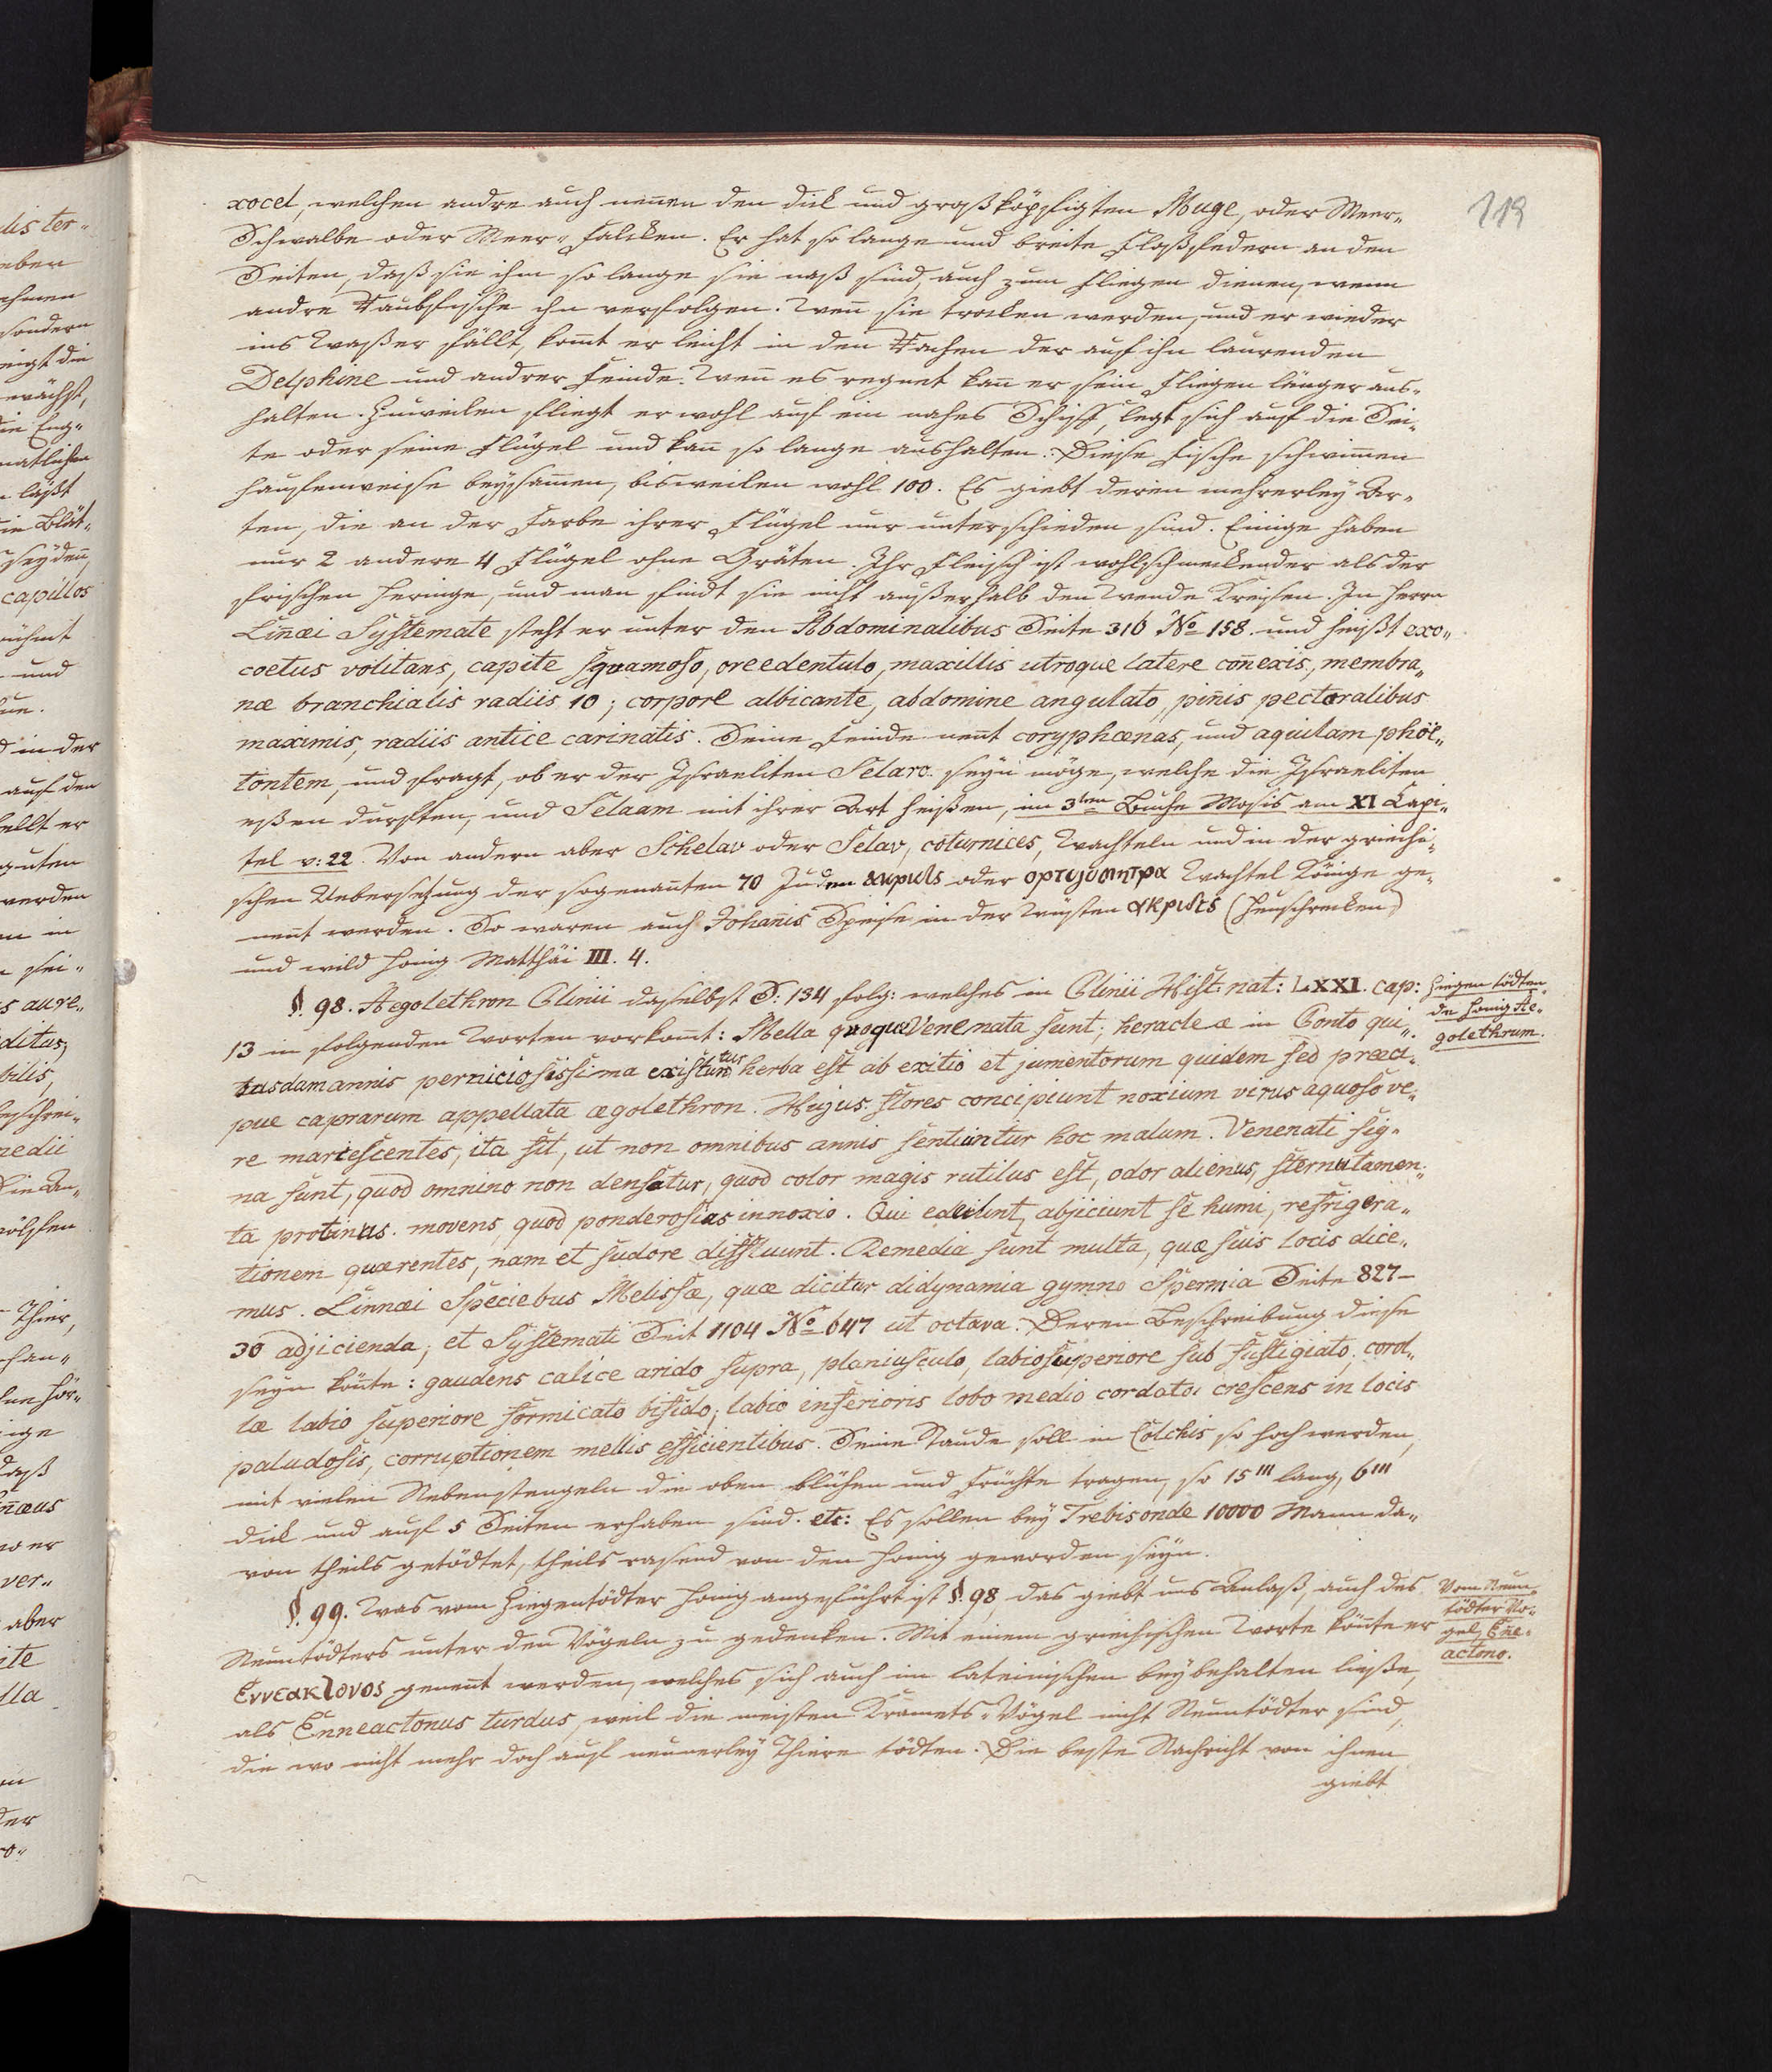 119
xocet, welchen andre auch nen̄en den dick und großköpfigten Muge, oder Meer-
Schwalbe oder Meer-Falcken. Er hat so lange und breite Floßfedern an den
Seiten, daß sie ihm so lange sie naß sind, auch zum Fliegen dienen, wenn
andre Raubfische ihn verfolgen. Wen̄ sie trocken werden, und er wieder
ins Waßer fällt, kom̄t er leicht in den Rachen der auf ihn laurenden
Delphine und andrer Feinde. Wen̄ es regnet kan̄ er sein Fliegen länger aus-
halten. Zuweilen fliegt er wohl auf ein nahes Schiff, legt sich auf die Sei-
te oder seine Flügel und kan̄ so lange aushalten. Diese Fische schwim̄en
haufenweise beysam̄en, bisweilen wohl 100. Es giebt deren mehrerley Ar-
ten, die an der Farbe ihrer Flügel nur unterschieden sind. Einige haben
nur 2 andere 4 Flügel ohne Gräten. Ihr Fleisch ist wohlschmeckender als der
frischen Heringe, und man findt sie nicht außerhalb den Wende Kreisen. In Herrn
Lin̄æi Systemate steht er unter den Abdominalibus Seite 316 No 158. und heißt exo-
coetus volitans, capite squamoso, ore edentulo, maxillis utroque latere con̄exis, membra-
næ branchialis radiis 10; corpore albicante, abdomine angulato, pin̄is pectoralibus
maximis, radiis antice carinatis. Seine Feinde nen̄t coryphœnas, und aquilam phöe-
tontem, und fragt, ob er der Israeliten Selaro. seyn möge, welche die Israeliten
eßen durften, und Selaam mit ihrer Art heißen, im 3ten Buche Mosis am XI Capi-
tel v: 22. Von andern aber Schelav oder Selav, coturnices, Wachteln und in der griechi-
schen Uebersetzung der sogenan̄ten 70 Juden ακριδς oder ορτυγομητρα Wachtel Könige ge-
nen̄t werden. So waren auch Johan̄is Speise in der Wüsten ακριδες (Heuschrecken)
und wild Honig Matthäi III. 4.
§. 98. Aegolethron Plinii daselbst S: 134 folg: welches in Plinii Hist: nat: L XXI. cap:
Ziegen tödten-
de Honig Ae-
golethrum.
13 in folgenden Worten vorkom̄t: Mella quoque Venenata sunt; heracleæ in Ponto qui-
busdam annis perniciosissima existunt herba est ab exitio et jumentorum quidem sed præci-
pue caprarum appellata ægolethron. Hujus flores concipiunt noxium virus aquoso ve-
re marcescentes, ita fit, ut non omnibus annis sentiuntur hoc malum. Venenati sig-
na sunt, quod omnino non densatur, quod color magis rutilus est, odor alienus, sternutamen-
ta protinus. movens, quod ponderosius innoxio. Qui ediunt, abjiciunt se humi, refrigera-
tionem quærentes, nam et sudore diffluunt. Remedia sunt multa, quæ suis locis dice-
mus. Linnæi Speciebus Melissæ, quæ dicitur didynamia gymno Spermia Seite 827-
30 adjicienda, et Systemati Seit 1104 No 647 ut octava. Deren Beschreibung diese
seyn kön̄te: gaudens calice arido supra, planiusculo, labio superiore sub fastigiato. corol-
læ labio superiore formicato bifido; labio inferioris lobo medio cordato; crescens in locis
paludosis, corruptionem mellis efficientibus. Seine Staude soll in Colchis so hoch werden,
mit vielen Nebenstengeln die oben blühen und Früchte tragen, so 15''' lang, 6'''
dick und auf 5 Seiten erhaben sind. etc: Es sollen bey Trebisonde 10000 Mann da-
von theils getödtet, theils rasend von den Honig geworden seyn.
§. 99. Was vom Ziegentödter Honig angeführt ist §. 98, das giebt uns Anlaß, auch des
Vom Neun-
tödter Vo-
gel, En̄e-
actono.
Neuntödters unter den Vögeln zu gedenken. Mit einem griechischen Worte kön̄te er
Εννεακλονος genen̄t werden, welches sich auch im lateinischen beybehalten ließe,
als Enneactonus turdus, weil die meisten Kramets-Vögel nicht Neuntödter sind,
die wo nicht mehr doch auf neunerley Thiere tödten. Die beste Nachricht von ihnen
giebt